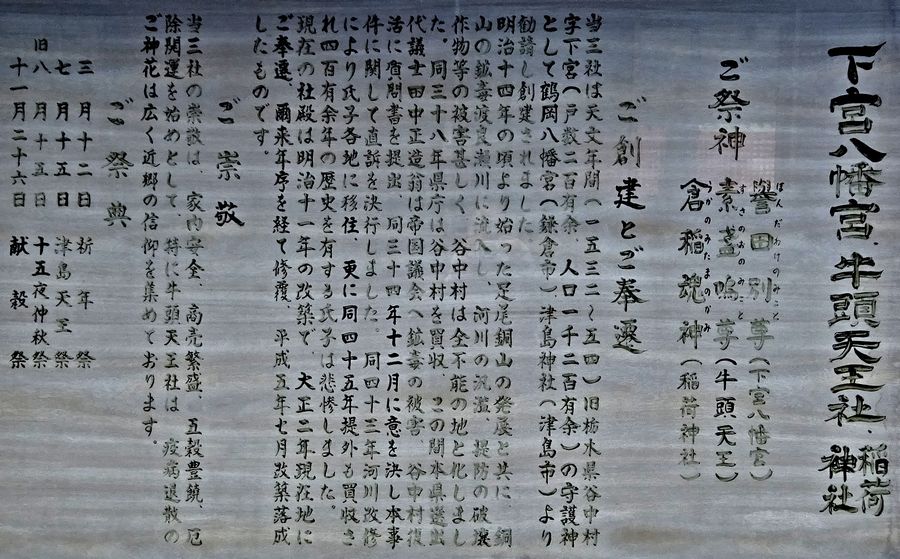 下宮八幡宮 牛頭天王社 稲荷神社
ご祭神
誉田別尊（下宮八幡宮）
ほんだわけのみこと
素盞嗚尊（牛頭天王）
すさのおのみこと
倉稲魂神（稲荷神社）
うがのみたまのかみ
ご創建とご奉遷
当三社は天文年間（一五三二～五四）旧栃木県谷中村
字下宮（戸数二百有余、人口一千二百有余）の守護神
として鶴岡八幡宮（鎌倉市）、津島神社（津島市）より
勧請し創建されました。
明治十四年の頃より始った足尾銅山の発展と共に、銅
山の鉱毒渡良瀬川に流入し、河川の氾濫、堤防の破壊
作物等の被害甚しく、谷中村は全不能の地と化しまし
た。同三十八年県庁は谷中村を買収、この間本県選出
代議士田中正造翁は帝国議会へ鉱毒の被害、谷中村復
活に質問書を提出、同三十四年十二月に意を決し本事
件に関して直訴を決行しました。同四十三年河川改修
により氏子各地に移住、更に同四十五年提外も買収さ
れ四百有余年の歴史を有する氏子は悲惨しました。
現在の社殿は明治十一年の改築で、大正二年現在地に
ご奉遷、爾来年序を経て修覆、平成五年七月改築落成
したものです。
ご崇敬
当三社の崇敬は、家内安全、商売繁盛、五穀豊饒、厄
除開運を始めとして、特に牛頭天王社は、疫病退散の
ご神花は広く近郷の信仰を集めております。
ご祭典
三月十二日 祈年祭
七月十五日 津島天王祭
旧八月十五日 十五夜仲秋祭
十一月二十六日 献穀祭